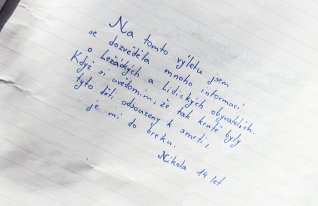 Na tomto výletu jsem
se dozvěděla mnoho informací
o Ležáckých a Lidických obyvatelích.
Když si uvědomím, že tak kruté byly
tyto děti odsouzeny k smrti,
je mi do breku.
Nikola 14 let